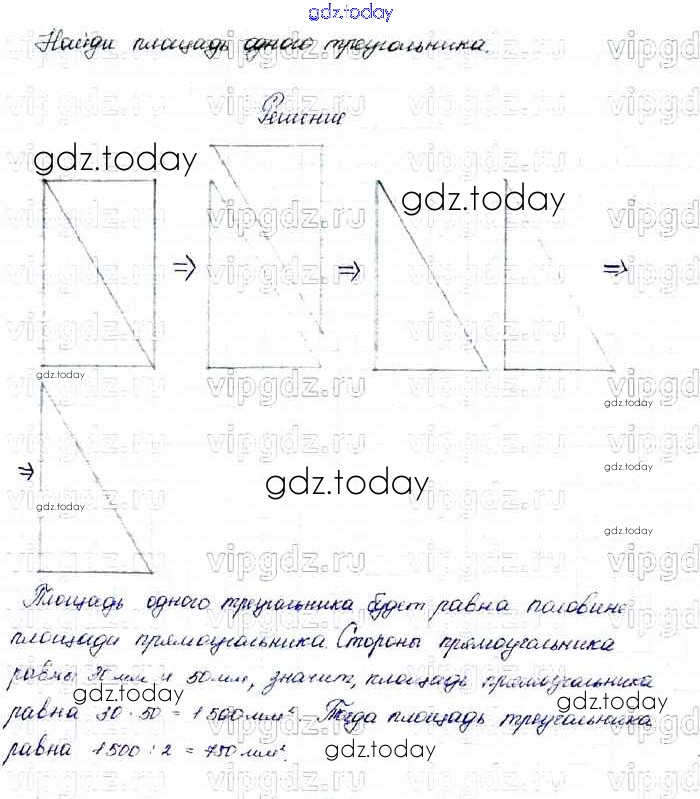 gdz.today
Найди площадь одного треугольника.
Решение
gdz.today
gdz.today
⇒ ⇒ ⇒
gdz.today
gdz.today
gdz.today
⇒
gdz.today
gdz.today
gdz.today
Площадь одного треугольника будет равна половине
площади прямоугольника. Стороны прямоугольника
равны 30 мм и 50 мм, значит, площадь прямоугольника
gdz.today
gdz.today
равна 30 · 50 = 1500 мм². Тогда площадь треугольника
равна 1500 : 2 = 750 мм².
gdz.today
vipgdz.ru